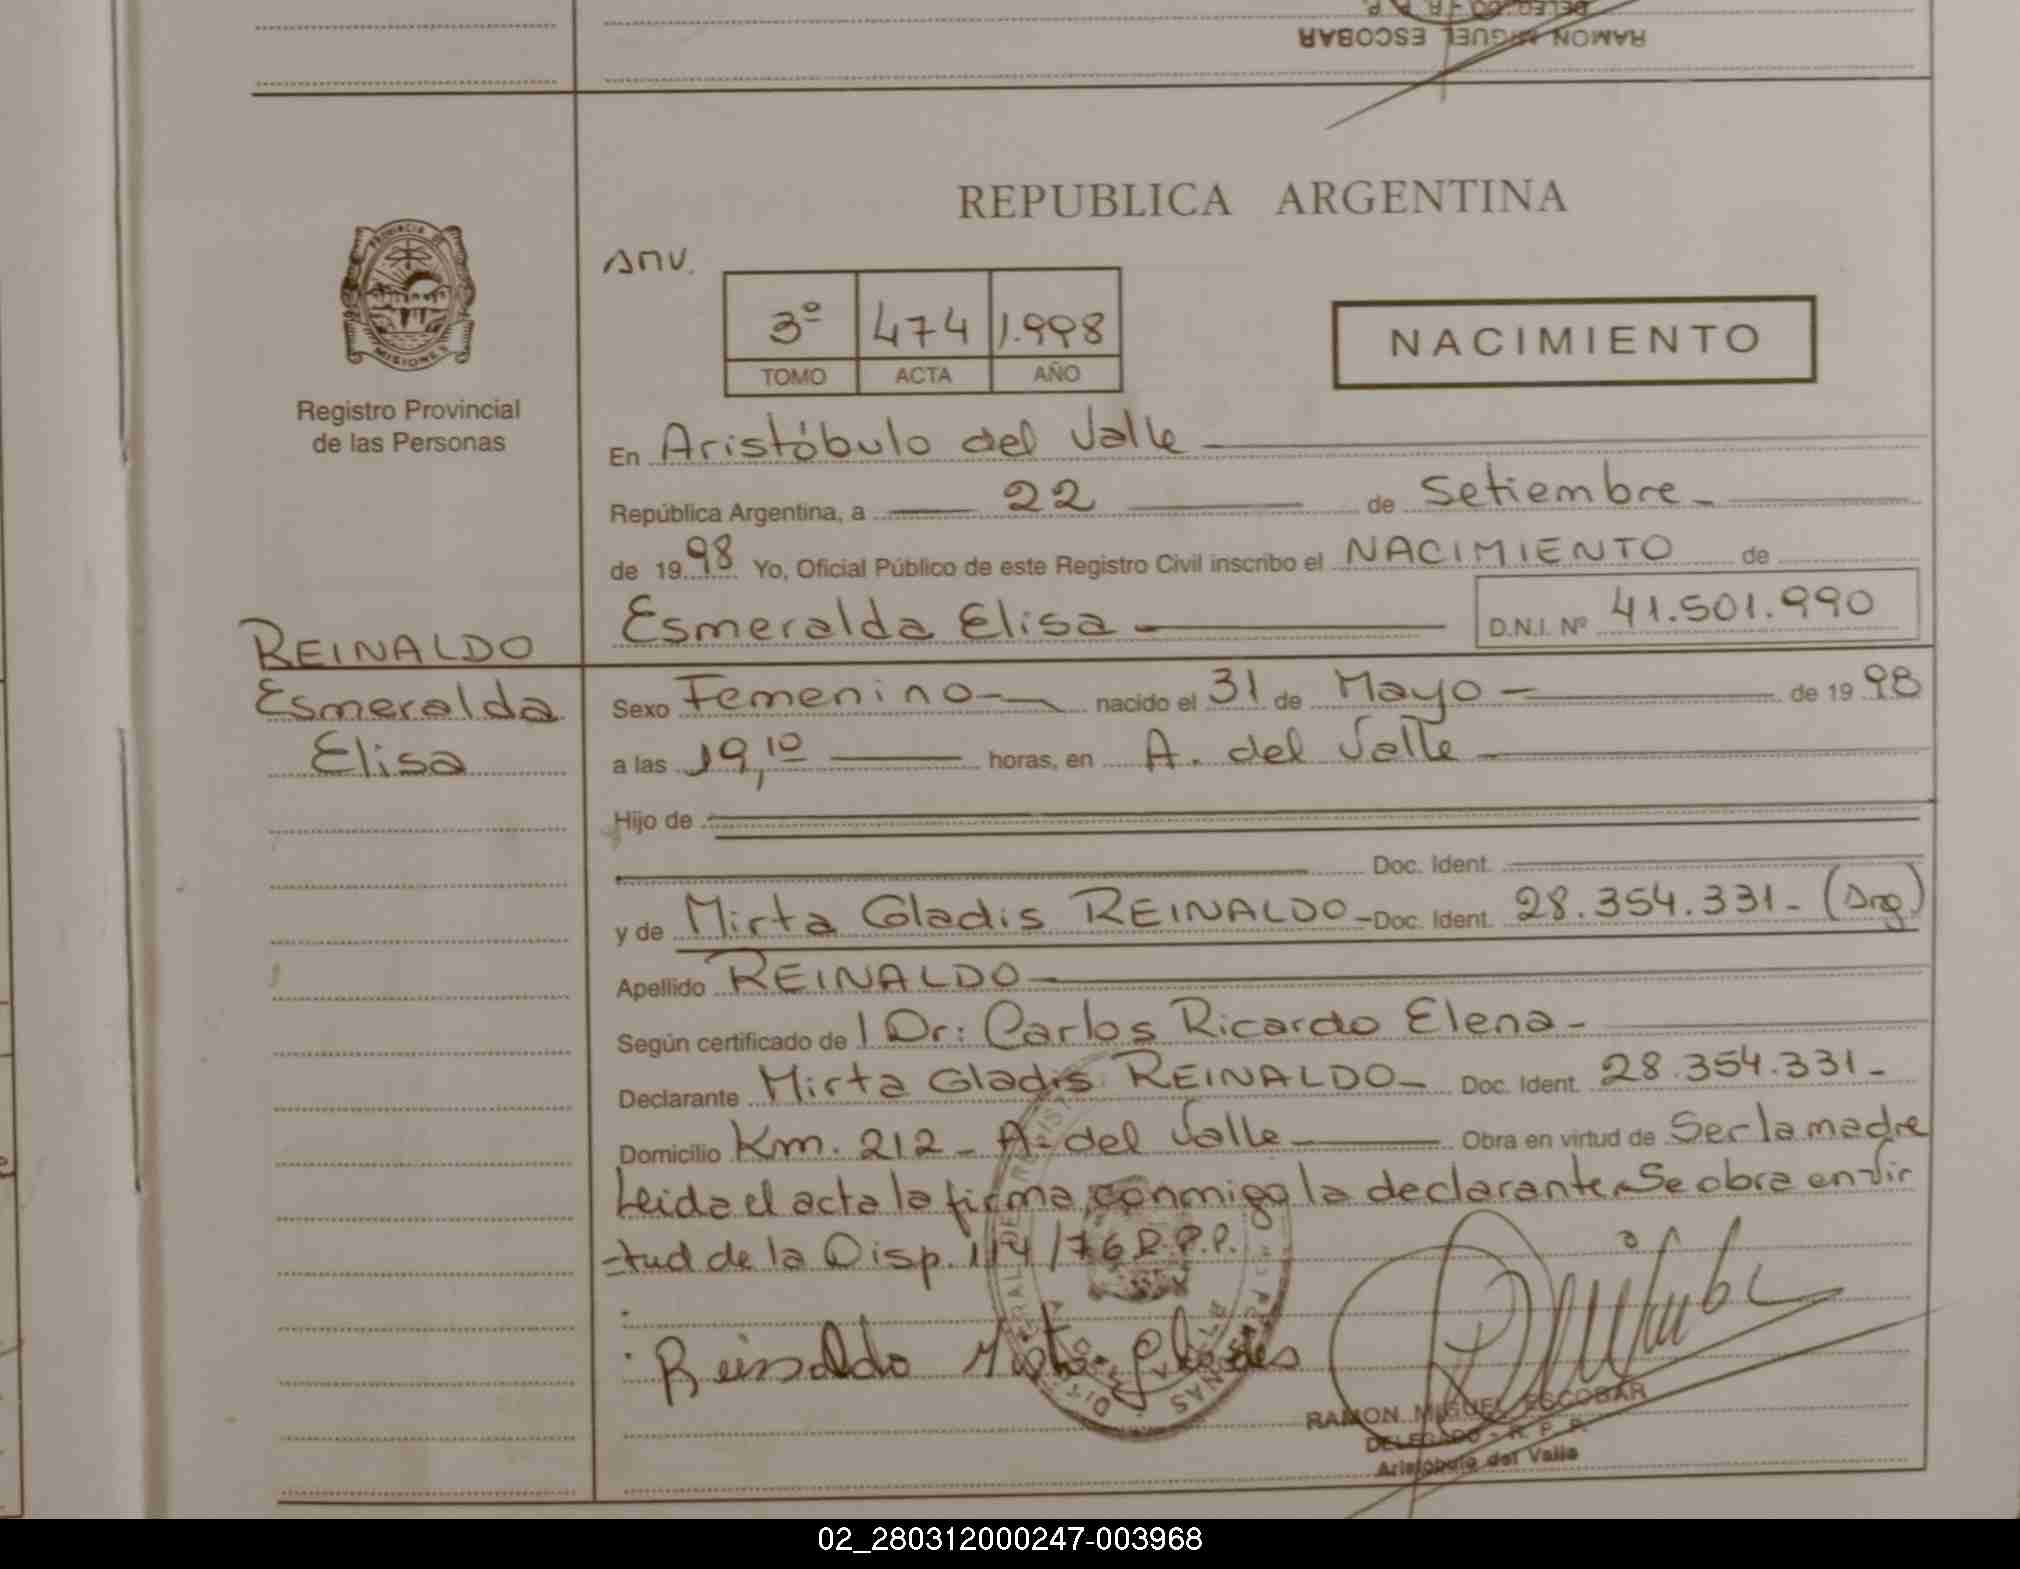 DELEGADO - R. P. P.
RAMON MIGUEL ESCOBAR
REPUBLICA ARGENTINA
PROVINCIA DE
MISIONES
Registro Provincial
de las Personas
anv.
3º 474 1.998
TOMO ACTA AÑO
NACIMIENTO
En Aristóbulo del Valle
República Argentina, a 22 de Setiembre
de 1998 Yo, Oficial Público de este Registro Civil inscribo el NACIMIENTO de
Esmeralda Elisa D.N.I. Nº 41.501.990
REINALDO
Esmeralda
Elisa
Sexo Femenino nacido el 31 de Mayo de 1998
a las 19,10 horas, en A. del Valle
Hijo de
Doc. Ident.
y de Mirta Gladis REINALDO - Doc. Ident. 28.354.331 - (Arg)
Apellido REINALDO
Según certificado de l Dr: Carlos Ricardo Elena -
Declarante Mirta Gladis REINALDO - Doc. Ident. 28.354.331 -
Domicilio Km. 212 - A. del Valle Obra en virtud de Ser la madre
Leida el acta la firma conmigo la declarante. Se obra en vir
-tud de la Disp. 114/76 R.P.P.
Reinaldo Mirta Glades
RAMON MIGUEL ESCOBAR
DELEGADO - R. P. P.
Aristóbulo del Valle
02_280312000247-003968